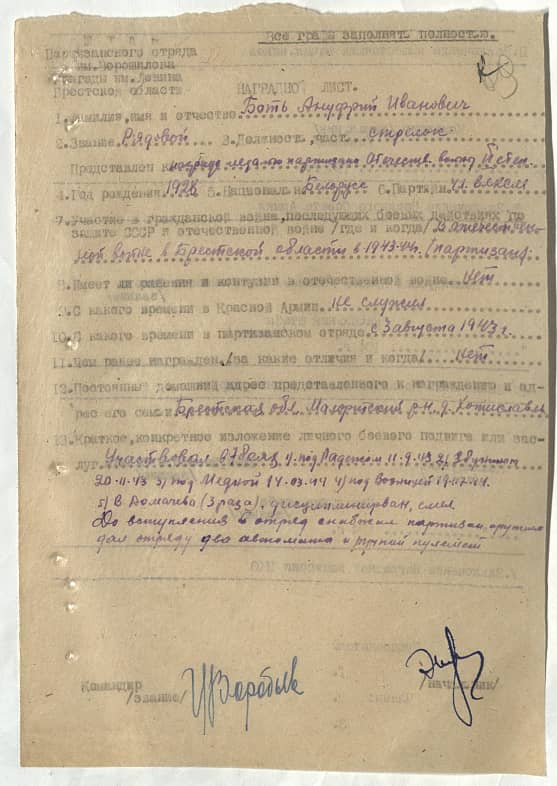 Все графы заполнять полностью.
Штаб
Партизанского отряда
им. Ворошилова
Бригады им. Ленина
Брестской области
НАГРАДНОЙ ЛИСТ.
1. Фамилия, имя и отчество Боть Ануфрий Иванович
2. Звание Рядовой 3. Должность, часть стрелок
Представлен к награде медаль партизана Отечеств. войны II степ.
4. Год рождения 1926 5. Национальн. Белорус 6. Партийн. чл. влксм
7. Участие в гражданской войне, последующих боевых действиях по
защите СССР и отечественной войне /где и когда/ В отечествен-
ной войне в Брестской области в 1943-44г. /партизан/
8. Имеет ли ранения и контузии в отечественной войне нет
9. С какого времени в Красной Армии не служил
10. С какого времени в партизанском отряде с 3 августа 1943 г.
11. Чем ранее награжден /за какие отличия и когда/ нет
12. Постоянный домашний адрес представленного к награждению и ад-
рес его семьи Брестская обл. Малоритский р-н д. Хотиславль
13. Краткое, конкретное изложение личного боевого подвига или зас-
луг Участвовал в 7 боях 1) под 11-9-43 2)
20-11-43 3) под Медной 14-03-44 4) под
5) В Домачева (3 раза). дисциплинирован, смел
До вступления в отряд снабжал партизан оружием
дал отряду два автомата и ручной пулемет
Командир
/звание/
/начальник/